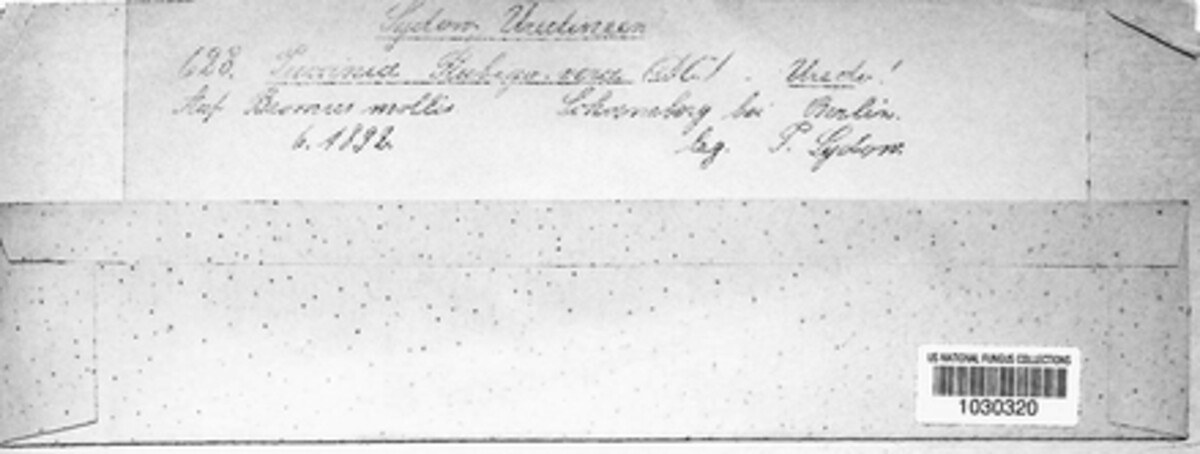 Sydow, Uredineen
628. Puccinia Rubigo-vera (DC.) . Uredo!
Auf Bromus mollis Schöneberg bei Berlin.
6. 1892. leg. P. Sydow.
US NATIONAL FUNGUS COLLECTIONS
1030320